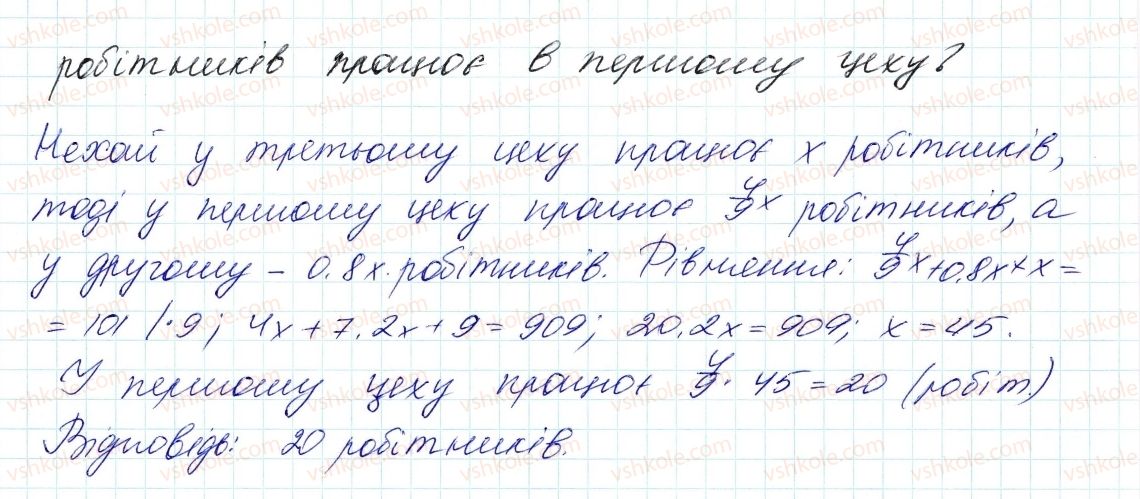 робітників працює в першому цеху?
Нехай у третьому цеху працює x робітників,
тоді у першому цеху працює 4/9 x робітників, а
у другому – 0.8x робітників. Рівняння: 4/9 x + 0.8x + x =
= 101 | · 9; 4x + 7.2x + 9 = 909; 20.2x = 909; x = 45.
У першому цеху працює 4/9 · 45 = 20 (робіт.)
Відповідь: 20 робітників.